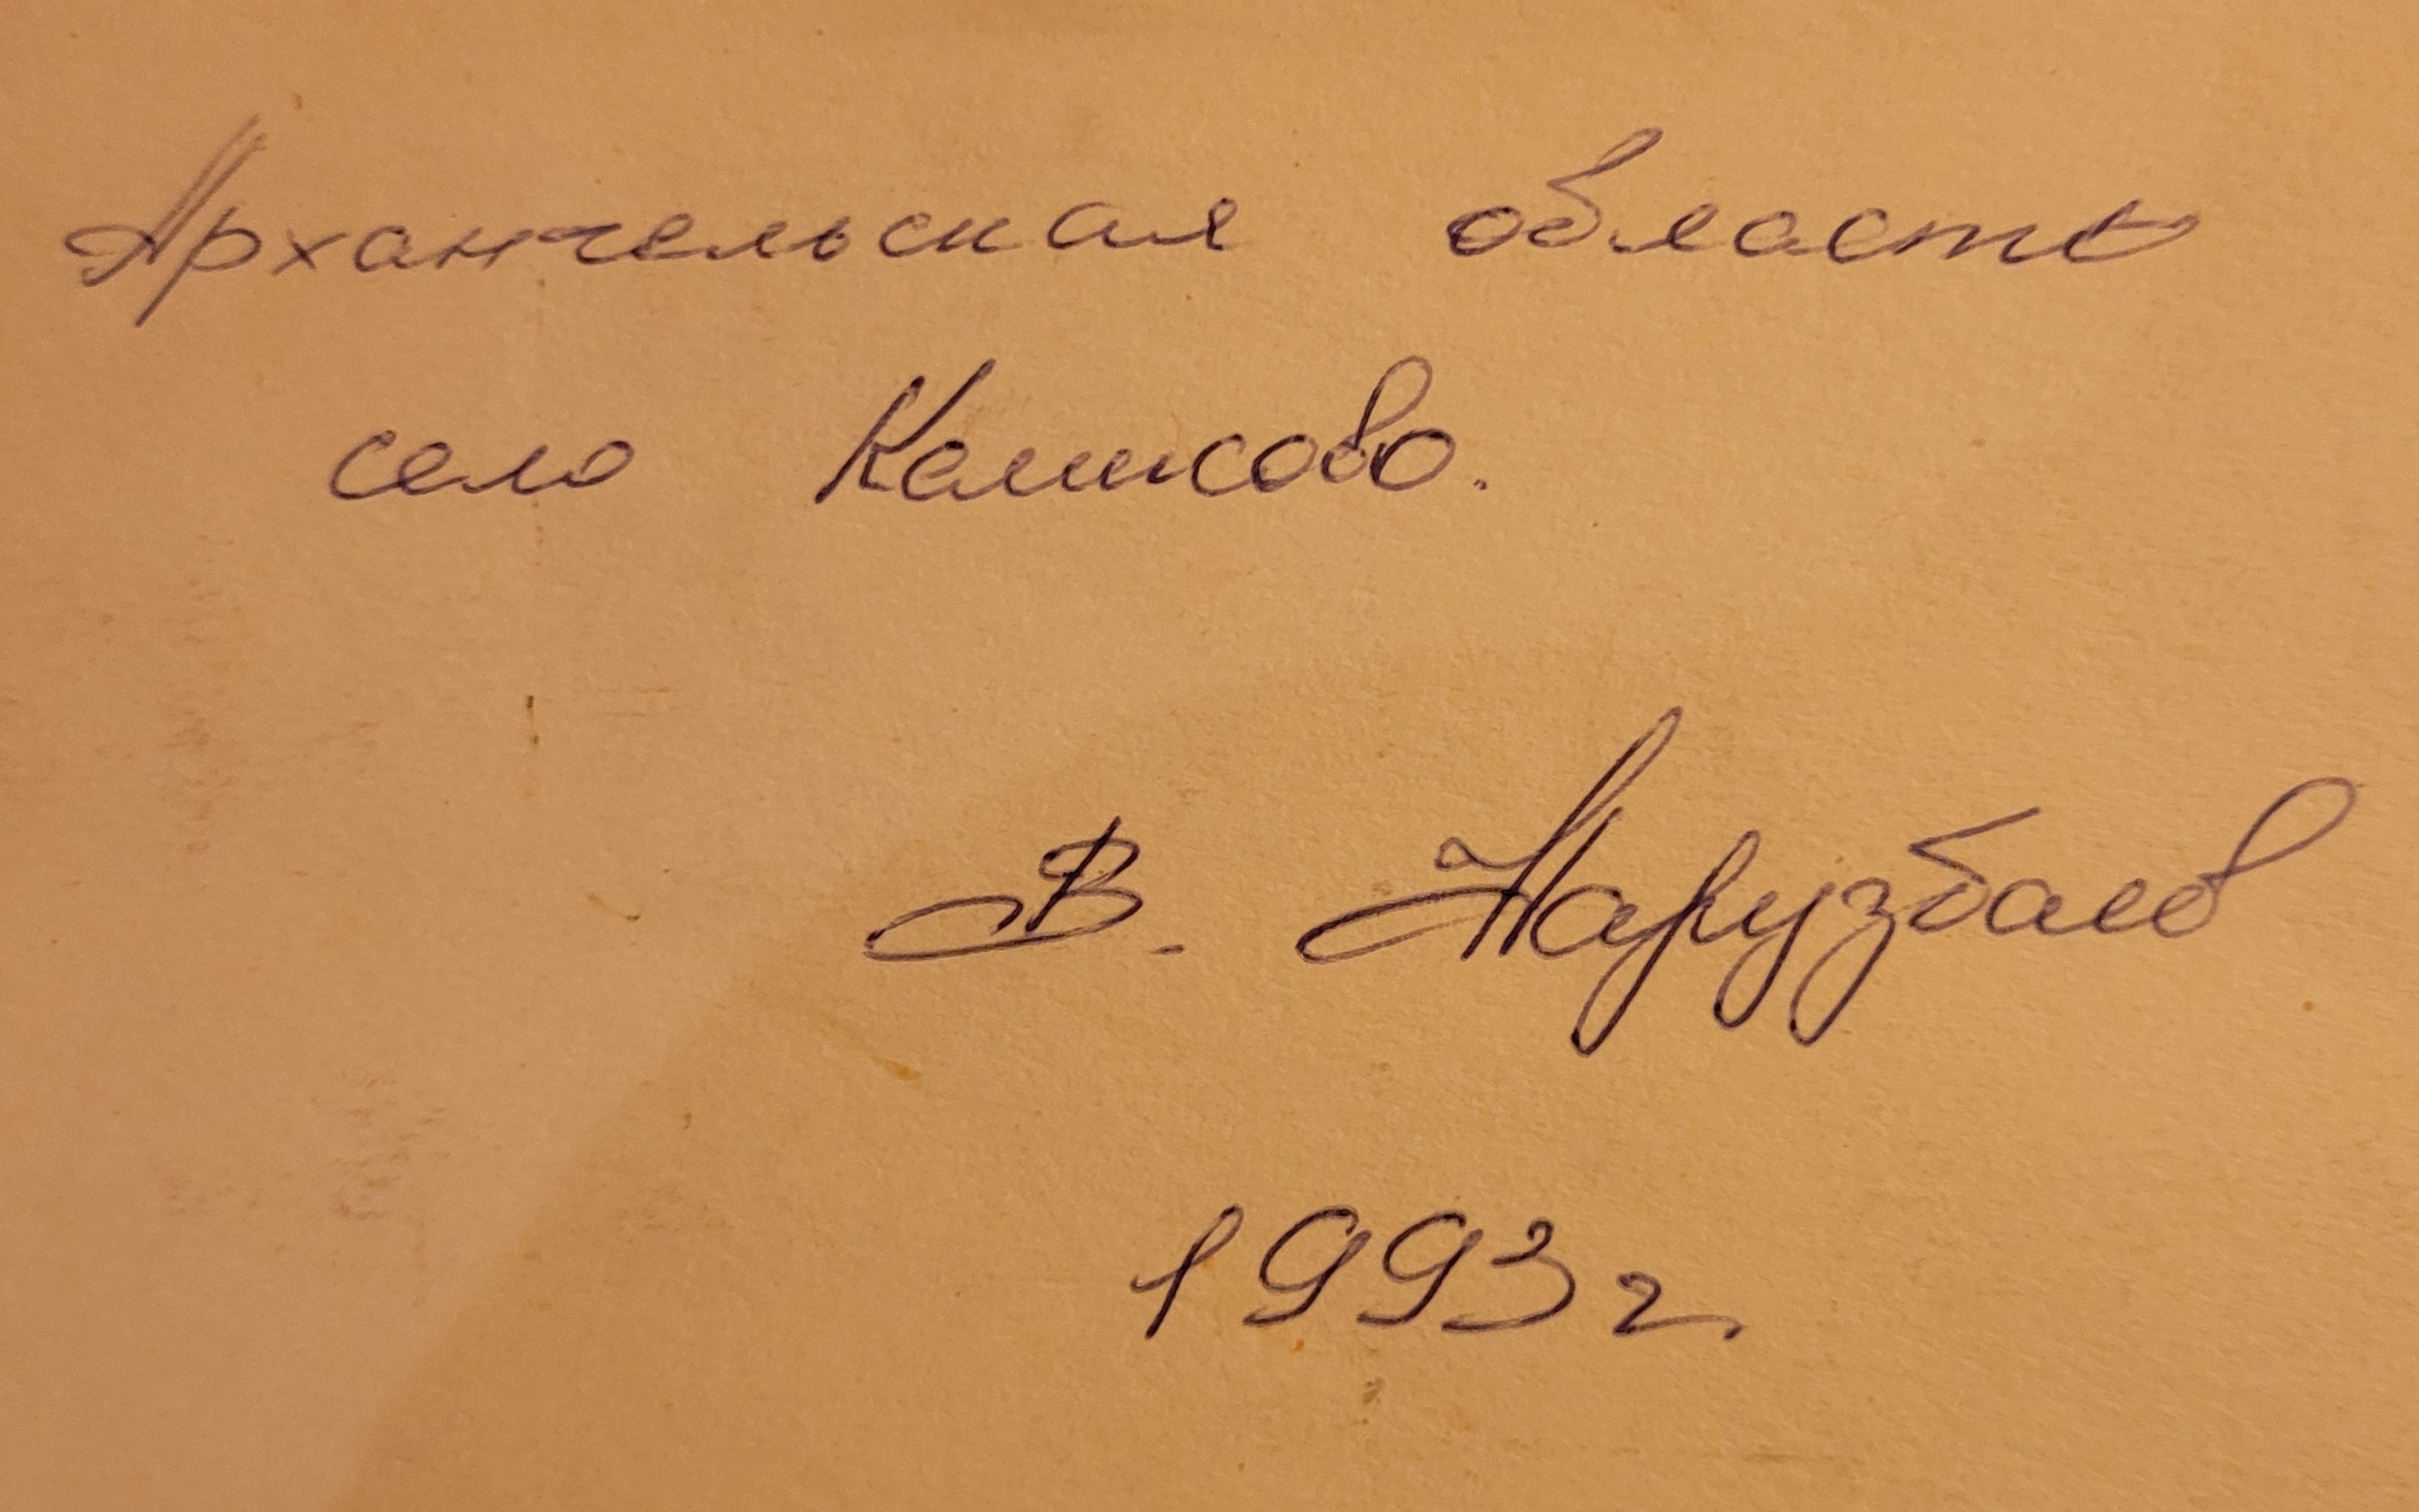 Архангельская область
село
В. Нарузбаев
1993 г.